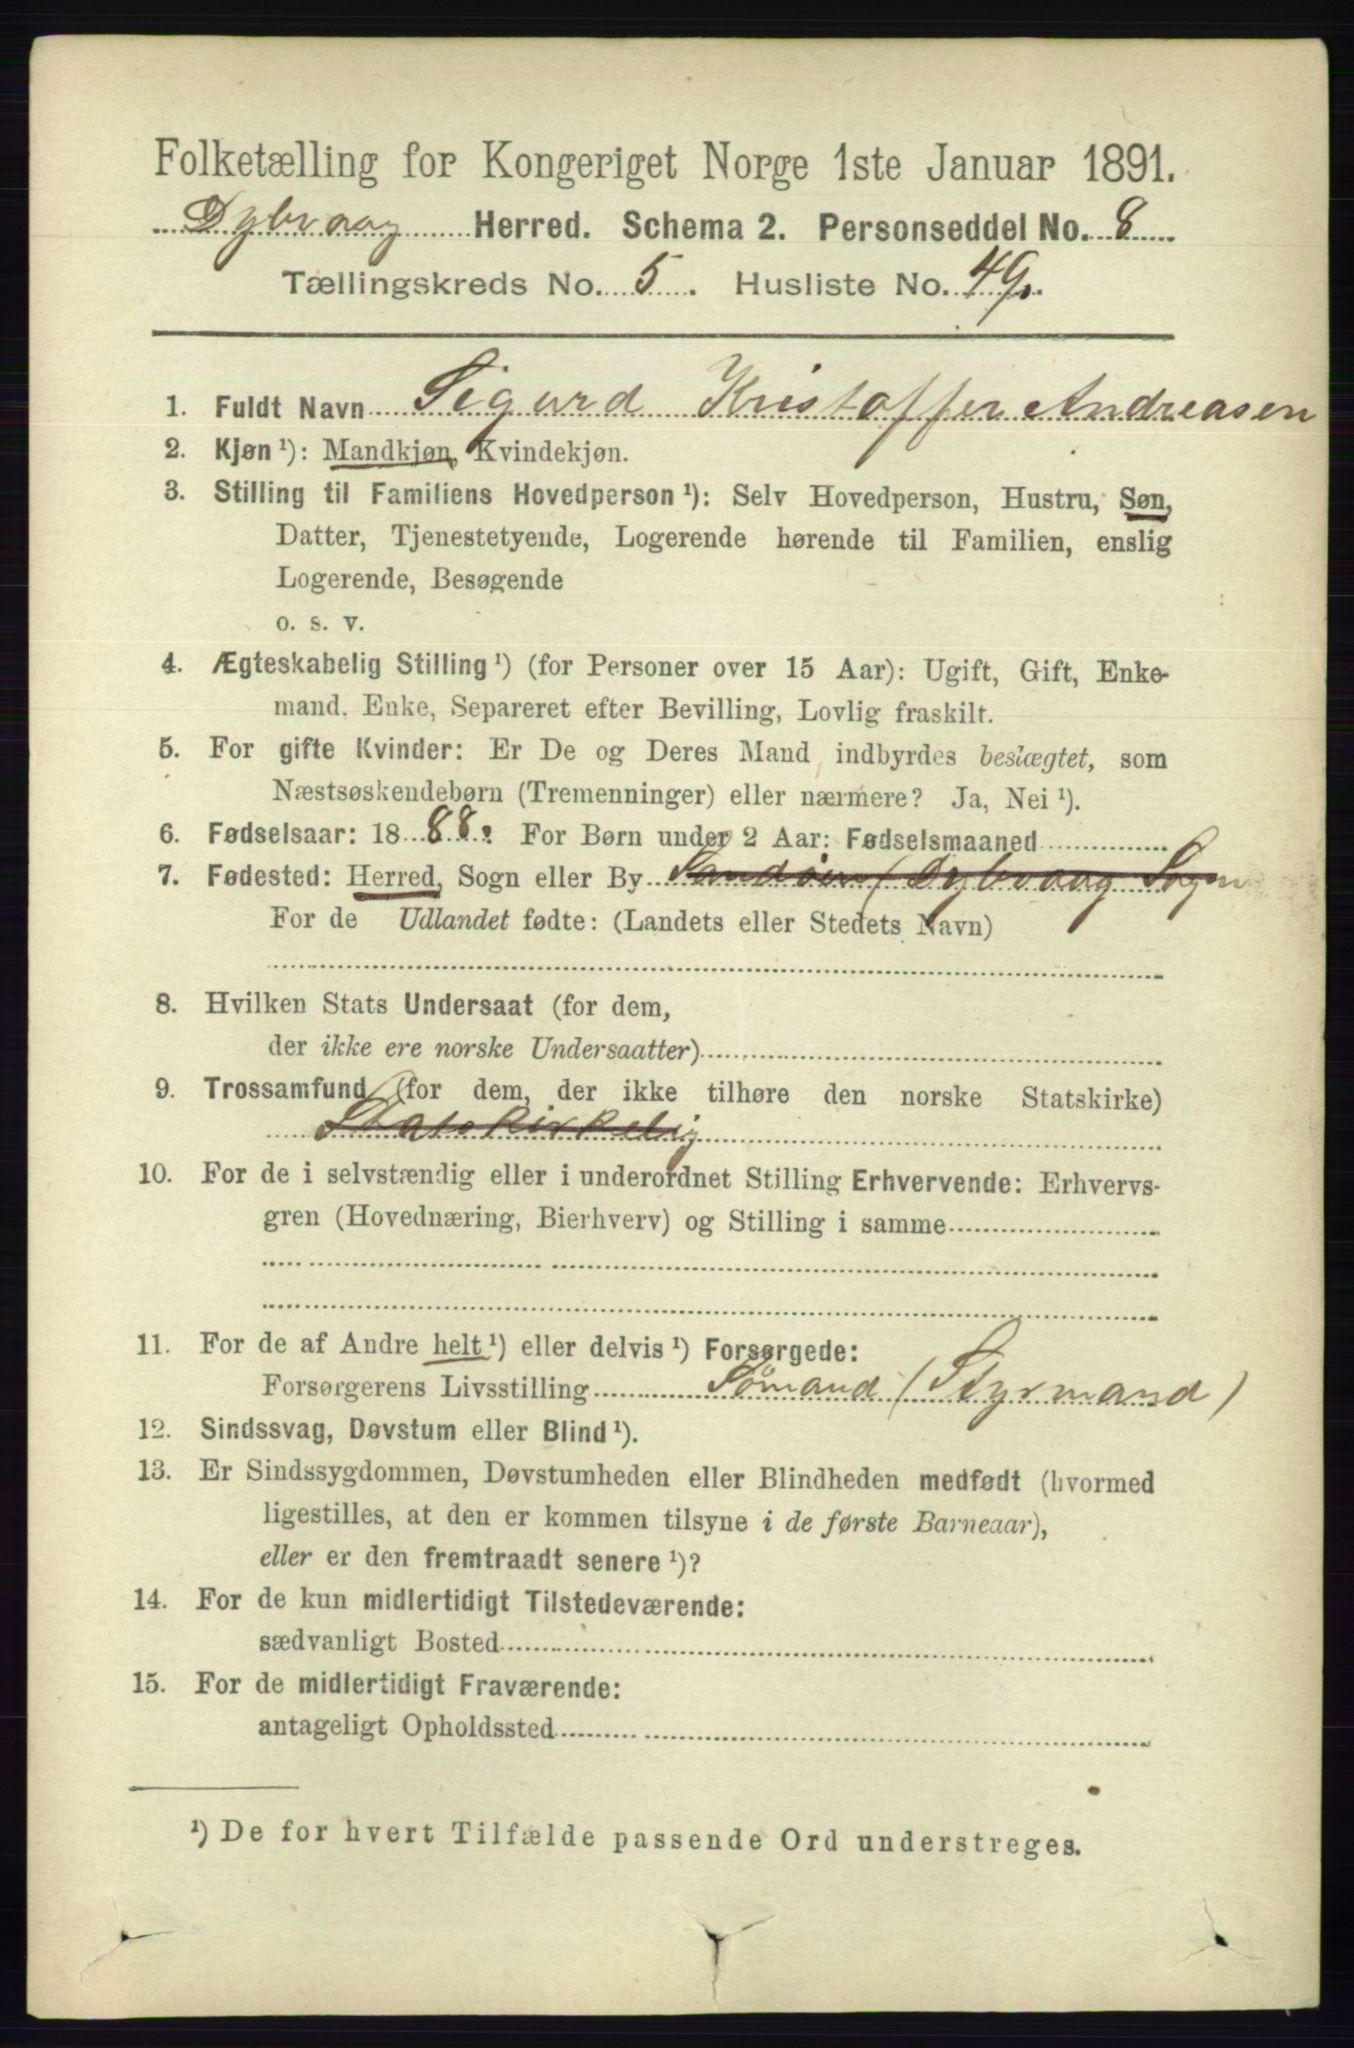 Folketælling for Kongeriget Norge 1ste Januar 1891.
Dybvaag Herred. Schema 2. Personseddel No. 8
Tællingskreds No. 5. Husliste No. 49.
1. Fuldt Navn Sigurd Kristoffer Andreasen
2. Kjøn ¹): Mandkjøn, Kvindekjøn.
3. Stilling til Familiens Hovedperson ¹): Selv Hovedperson, Hustru, Søn,
Datter, Tjenestetyende, Logerende hørende til Familien, enslig
Logerende, Besøgende
o. s. v.
4. Ægteskabelig Stilling ¹) (for Personer over 15 Aar): Ugift, Gift, Enke-
mand, Enke, Separeret efter Bevilling, Lovlig fraskilt.
5. For gifte Kvinder: Er De og Deres Mand indbyrdes beslægtet, som
Næstsøskendebørn (Tremenninger) eller nærmere? Ja, Nei ¹).
6. Fødselsaar: 1888. For Børn under 2 Aar: Fødselsmaaned
7. Fødested: Herred, Sogn eller By Sandøen (Dybvaag Sogn
For de Udlandet fødte: (Landets eller Stedets Navn)
8. Hvilken Stats Undersaat (for dem,
der ikke ere norske Undersaatter)
9. Trossamfund (for dem, der ikke tilhøre den norske Statskirke)
Statskirkelig
10. For de i selvstændig eller i underordnet Stilling Erhvervende: Erhvervs-
gren (Hovednæring, Bierhverv) og Stilling i samme
11. For de af Andre helt ¹) eller delvis ¹) Forsørgede:
Forsørgerens Livsstilling Sømand (Styrmand)
12. Sindssvag, Døvstum eller Blind ¹).
13. Er Sindssygdommen, Døvstumheden eller Blindheden medfødt (hvormed
ligestilles, at den er kommen tilsyne i de første Barneaar),
eller er den fremtraadt senere ¹)?
14. For de kun midlertidigt Tilstedeværende:
sædvanligt Bosted
15. For de midlertidigt Fraværende:
antageligt Opholdssted
¹) De for hvert Tilfælde passende Ord understreges.